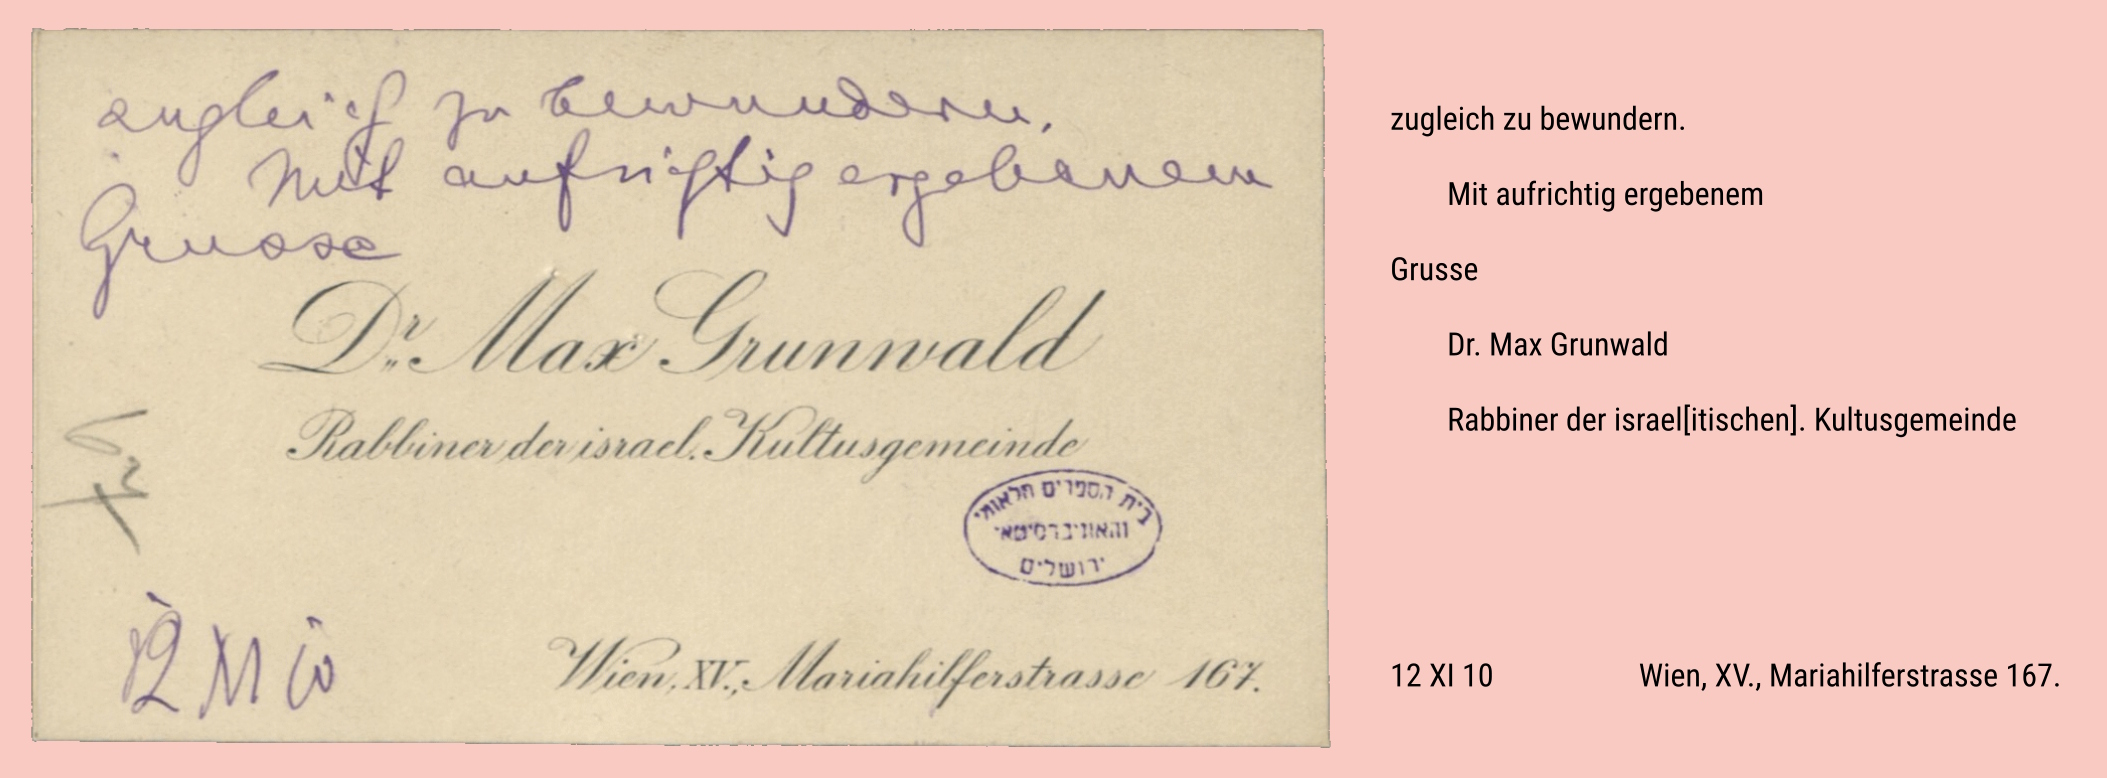 zugleich zu bewundern.
Mit aufrichtig ergebenem
Grusse
Dr. Max Grunwald
Rabbiner der israel. Kultusgemeinde
בית הספרים הלאומי
והאוניברסיטאי
ירושלים
12 XI 10
Wien, XV., Mariahilferstrasse 167.
zugleich zu bewundern.
Mit aufrichtig ergebenem
Grusse
Dr. Max Grunwald
Rabbiner der israel[itischen]. Kultusgemeinde
12 XI 10 Wien, XV., Mariahilferstrasse 167.